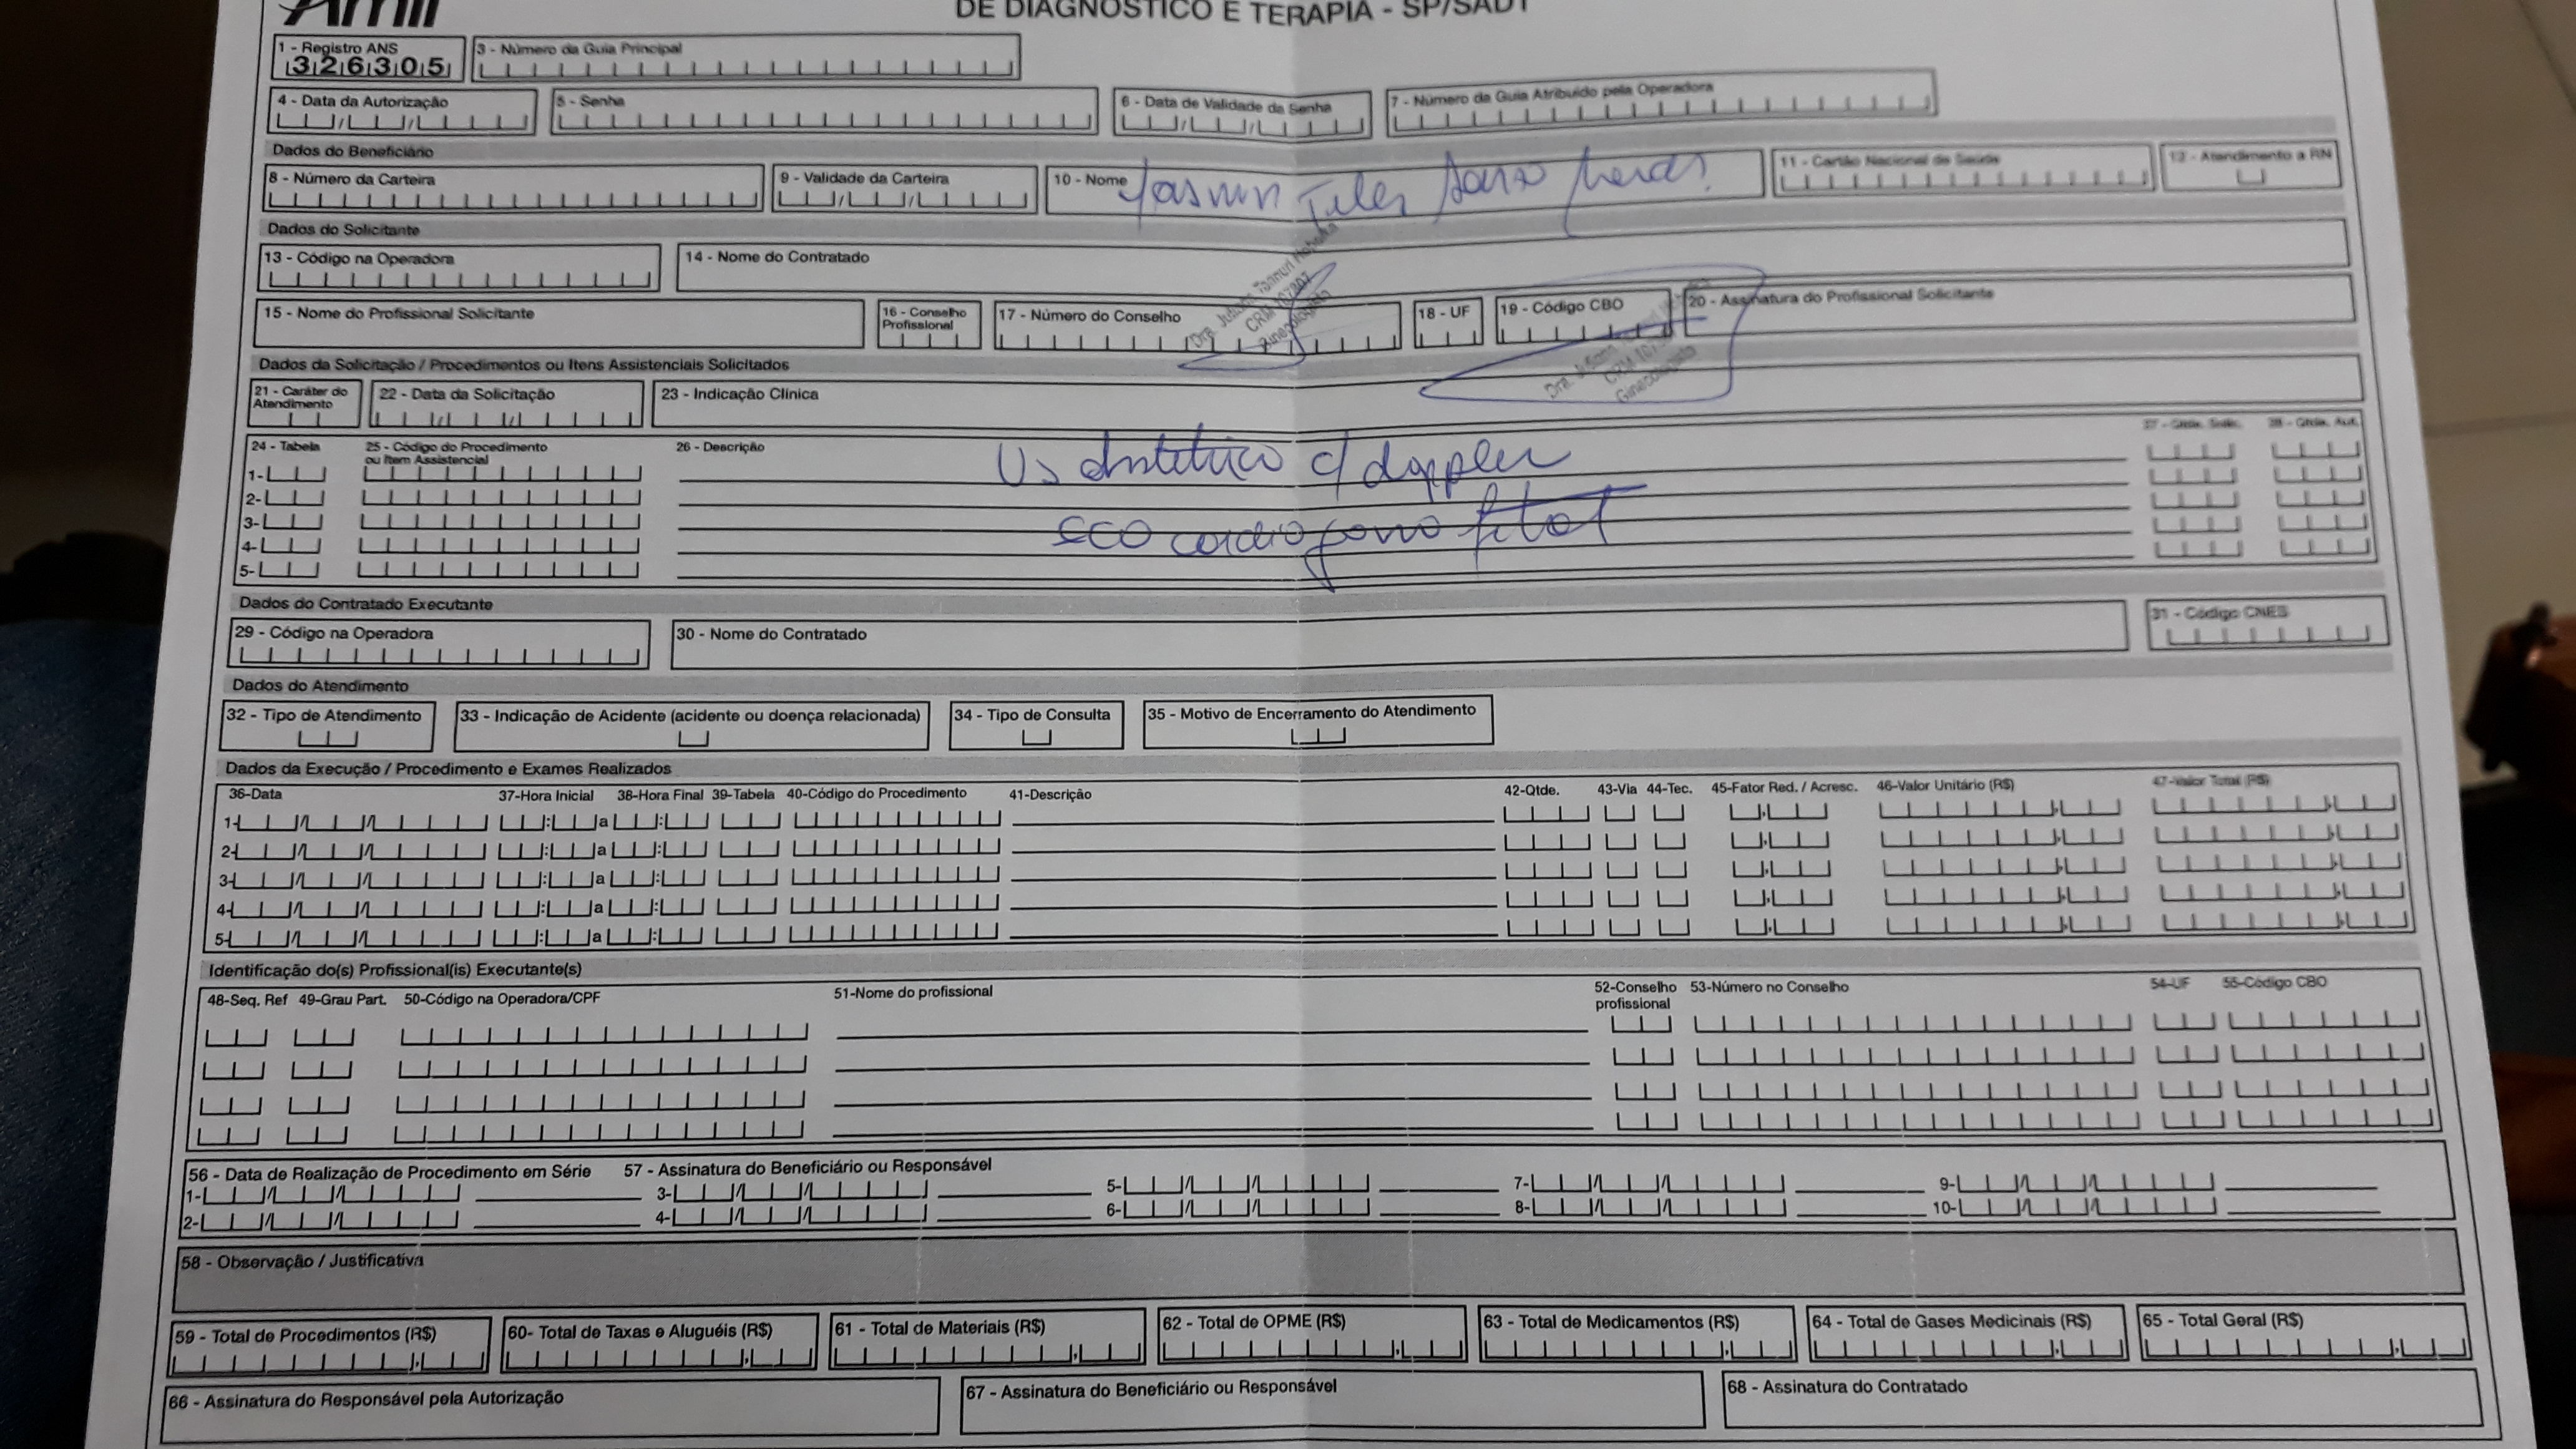 Amil
DE DIAGNÓSTICO E TERAPIA - SP/SADT
1 - Registro ANS
326305
3 - Número da Guia Principal
4 - Data da Autorização
5 - Senha
6 - Data de Validade da Senha
7 - Número da Guia Atribuído pela Operadora
Dados do Beneficiário
8 - Número da Carteira
9 - Validade da Carteira
10 - Nome
Yasmin
11 - Cartão Nacional de Saúde
12 - Atendimento a RN
Dados do Solicitante
13 - Código na Operadora
14 - Nome do Contratado
15 - Nome do Profissional Solicitante
16 - Conselho Profissional
17 - Número do Conselho
18 - UF
19 - Código CBO
20 - Assinatura do Profissional Solicitante
Dados da Solicitação / Procedimentos ou Itens Assistenciais Solicitados
21 - Caráter do Atendimento
22 - Data da Solicitação
23 - Indicação Clínica
24 - Tabela
25 - Código do Procedimento ou Item Assistencial
26 - Descrição
27 - Qtde. Solic.
28 - Qtde. Aut.
1-
Us obstétrico c/ doppler
2-
3-
eco cardiograma fetal
4-
5-
Dados do Contratado Executante
29 - Código na Operadora
30 - Nome do Contratado
31 - Código CNES
Dados do Atendimento
32 - Tipo de Atendimento
33 - Indicação de Acidente (acidente ou doença relacionada)
34 - Tipo de Consulta
35 - Motivo de Encerramento do Atendimento
Dados da Execução / Procedimento e Exames Realizados
36-Data 37-Hora Inicial 38-Hora Final 39-Tabela 40-Código do Procedimento 41-Descrição 42-Qtde. 43-Via 44-Tec. 45-Fator Red. / Acresc. 46-Valor Unitário (R$) 47-Valor Total (R$)
1- a
2- a
3- a
4- a
5- a
Identificação do(s) Profissional(is) Executante(s)
48-Seq. Ref 49-Grau Part. 50-Código na Operadora/CPF 51-Nome do profissional 52-Conselho profissional 53-Número no Conselho 54-UF 55-Código CBO
56 - Data de Realização de Procedimento em Série 57 - Assinatura do Beneficiário ou Responsável
1- 3- 5- 7- 9-
2- 4- 6- 8- 10-
58 - Observação / Justificativa
59 - Total de Procedimentos (R$)
60- Total de Taxas e Aluguéis (R$)
61 - Total de Materiais (R$)
62 - Total de OPME (R$)
63 - Total de Medicamentos (R$)
64 - Total de Gases Medicinais (R$)
65 - Total Geral (R$)
66 - Assinatura do Responsável pela Autorização
67 - Assinatura do Beneficiário ou Responsável
68 - Assinatura do Contratado